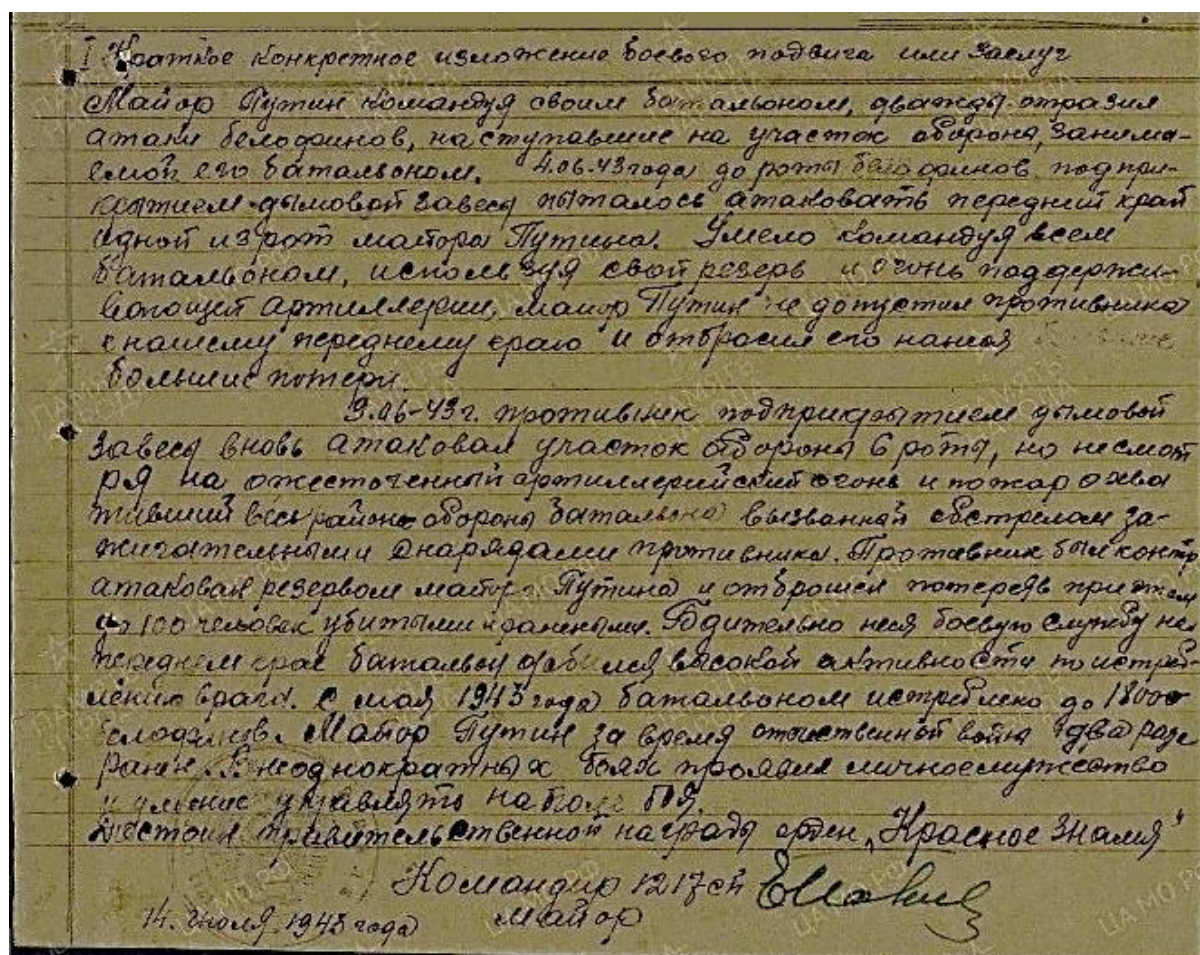 I Краткое конкретное изложение боевого подвига или заслуг
Майор Путин командуя своим батальоном, дважды отразил
атаки белофинов, наступавшие на участок оборона, занима-
емой его батальоном. 4.06-43 года до роты белофинов под при-
крытием дымовой завесы пыталось атаковать передний край
одной из рот майора Путина. Умело командуя всем
батальоном, используя свой резерв и огонь поддержи-
вающей артиллерии, майор Путин не допустил противника
к нашему переднему краю и отбросил его нанеся
большие потери.
9.06-43 г. противник под прикрытием дымовой
завесы вновь атаковал участок обороны 6 роты, но несмот
ря на ожесточенный артиллерийский огонь и пожар охва
тивший весь район обороны батальона вызванный обстрелом за-
жигательными снарядами противника. Противник был контр
атакован резервом майора Путина и отброшен потеряв при этом
до 100 человек убитыми и ранеными. Бдительно неся боевую службу на
переднем крае батальон добился высокой активности по истреб-
лению врага. С мая 1943 года батальоном истреблено до
белофинов. Майор Путин за время отечественной война два раза
ранен. В неоднократных боях проявил личное мужество
и умение управлять на поле боя.
Достоин правительственной награды орден „Красное Знамя"
Командир 1217 сп
14. июля. 1943 года майор
ЦАМО РФ